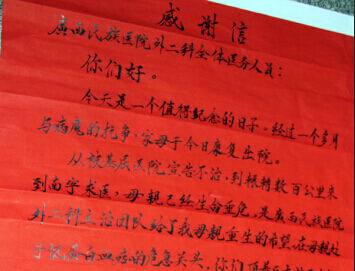 感谢信
广西民族医院外二科全体医务人员：
你们好。
今天是一个值得纪念的日子。经过一个多月
与病魔的抗争，家母于今日康复出院。
从被基层医院宣告不治，到辗转数百公里来
到南宁求医，母亲已经生命垂危，是广西民族医院
外二科主治团队给了我母亲重生的希望。在母亲处
于低蛋白血症的危急关头，你们顶着